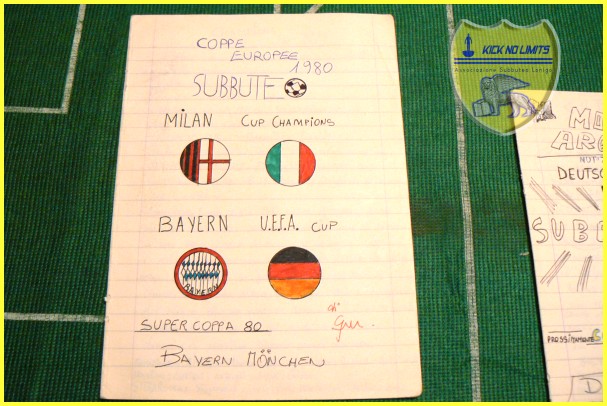 COPPE
EUROPEE
1980
SUBBUTEO
MILAN CUP CHAMPIONS
BAYERN U.E.F.A. CUP
BAYERN
SUPER COPPA 80
di
BAYERN MÖNCHEN
KICK NO LIMITS
Associazione Subbuteo Lonigo
MO
AR
DEUTSC
SUBB
D